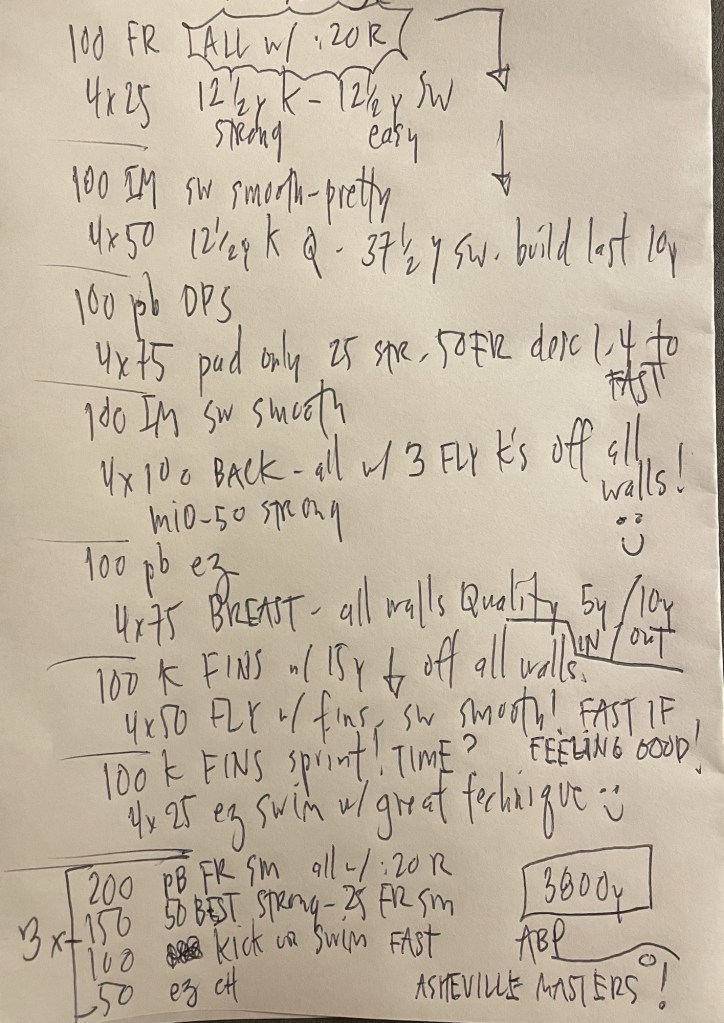 100 FR ALL w/ :20 R
4x25 12½y K - 12½y SW
strong easy
100 IM sw smooth-pretty
4x50 12½y K Q - 37½y sw. build last 10y
100 pb DPS
4x75 pad only 25 str, 50FR desc 1,4 to
FAST
100 IM sw smooth
4x100 BACK - all w/ 3 FLY K's off all
walls!
MID-50 strong
100 pb ez
4x75 BREAST - all walls Quality 5y / 10y
IN / OUT
100 K FINS w/ 15y ↓ off all walls.
4x50 FLY w/ fins, sw smooth! FAST IF
FEELING GOOD!
100 K FINS sprint! TIME?
4x25 ez swim w/ great technique
200 pB FR sm all w/ :20 R
3x 150 50 BEST strong - 25 FR sm
100 kick or swim FAST
50 ez CH
3800y
ABP
ASHEVILLE MASTERS!